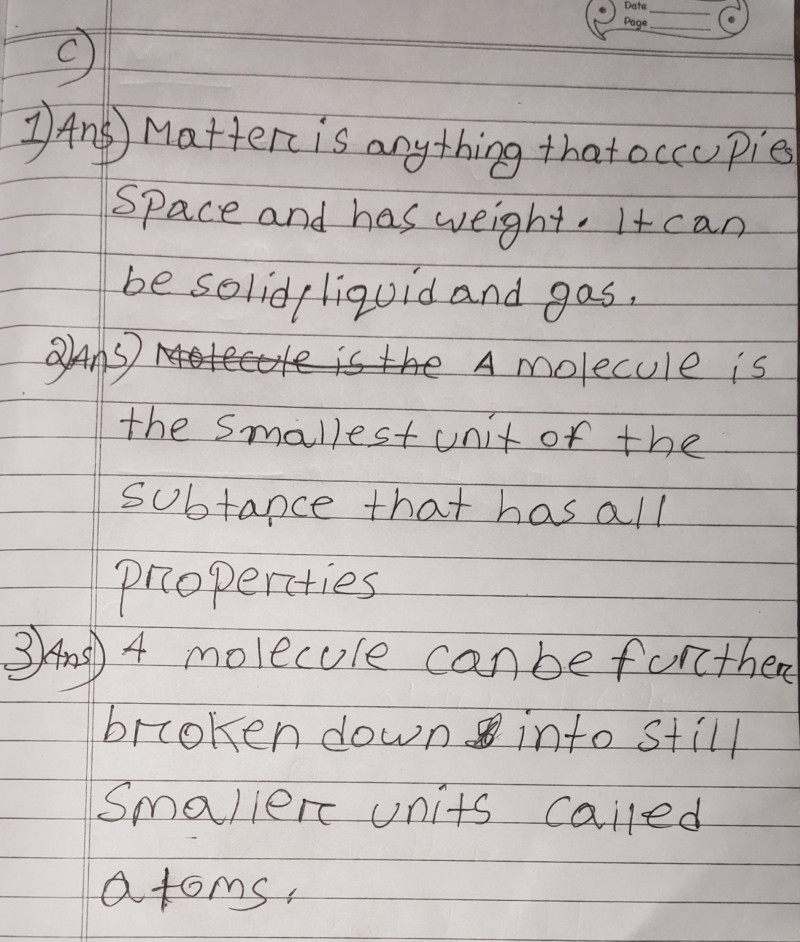 Date
Page
C)
1) Ans) Matter is anything that occupies
space and has weight. It can
be solid, liquid and gas.
2) Ans) Molecule is the A molecule is
the smallest unit of the
subtance that has all
properties
3) Ans) A molecule can be further
broken down into still
smaller units called
atoms.